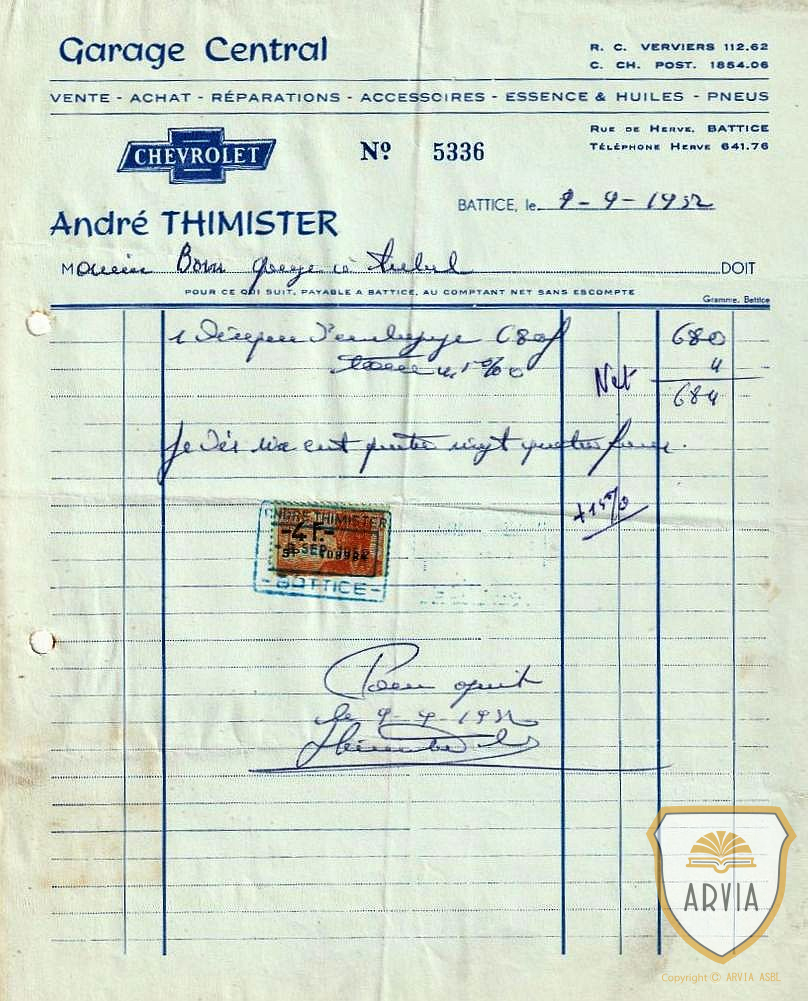 Garage Central
R. C. VERVIERS 112.62
C. CH. POST. 1854.06
VENTE - ACHAT - RÉPARATIONS - ACCESSOIRES - ESSENCE & HUILES - PNEUS
CHEVROLET
Nº 5336
RUE DE HERVE, BATTICE
TÉLÉPHONE HERVE 641.76
BATTICE, le 9-9-1952
André THIMISTER
Monsieur à DOIT
POUR CE QUI SUIT, PAYABLE A BATTICE, AU COMPTANT NET SANS ESCOMPTE
Gramme. Battice
1 680f 680
taxe 4
Net 684
Je dis six cent quatre vingt quatre francs.
+15%
ANDRÉ THIMISTER
-4 F.-
SEP
- BATTICE -
Pour aquit
le 9-9-1952
ARVIA
Copyright © ARVIA ASBL